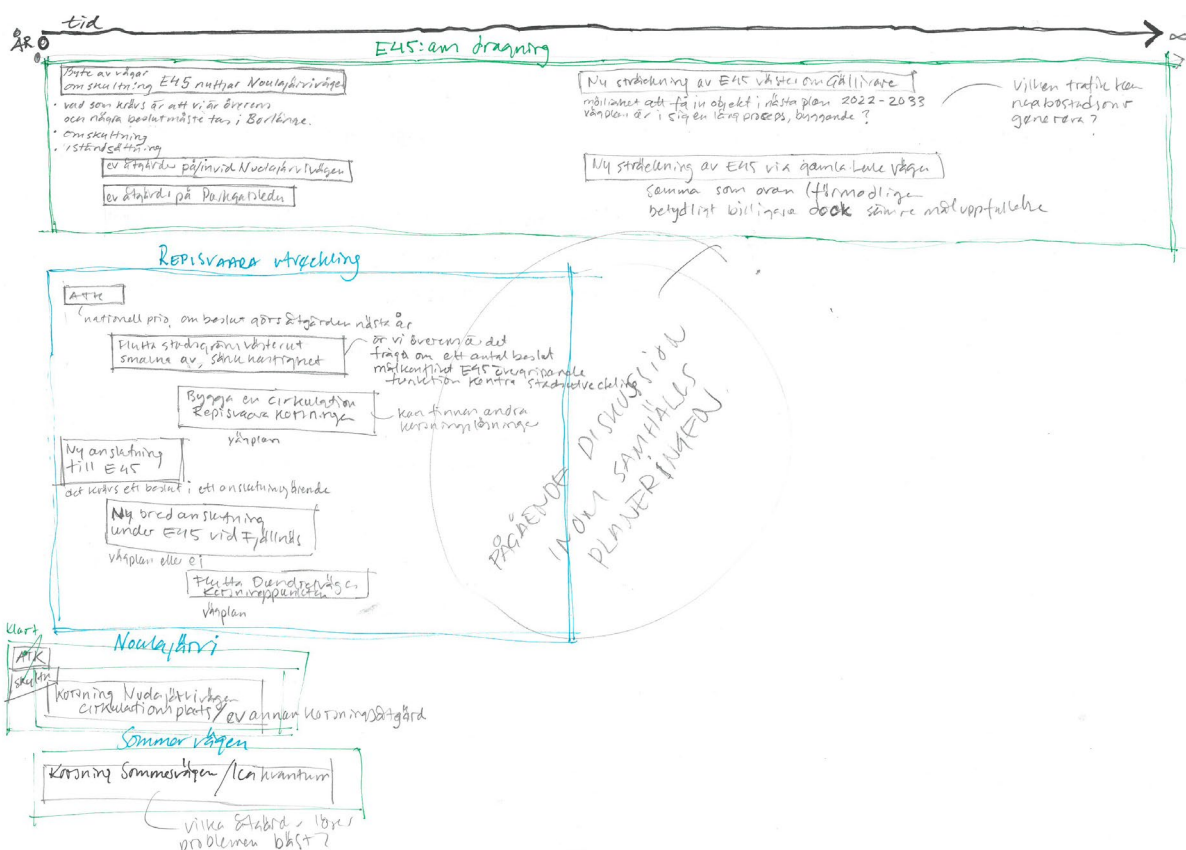 tid
ÅR 0
∞
E45:an dragning
Byte av vägar
omskyltning E45 nyttjar Noulajärvivägen
• vad som krävs är att vi är överens
och några beslut måste tas i Borlänge.
• omskyltning
• iståndsättning
ev åtgärder på/invid Nuolajärvivägen
ev åtgärder på Parkgatsleden
Ny sträckning av E45 väster om Gällivare
möjlighet att få in objekt i nästa plan 2022-2033
vägplan är i sig en lång process, byggande?
Vilken trafik kan
nya bostadsomr
generera?
Ny sträckning av E45 via gamla Lule vägen
samma som ovan (förmodligen
betydligt billigare dock sämre måluppfyllelse
REPISVAARA utveckling
ATK
nationell prio, om beslut görs åtgärden nästa år
Flytta stadsgräns västerut
smalna av, sänk hastighet
är vi överens är det
fråga om ett antal beslut
målkonflikt E45 övergripande
funktion kontra stadsutveckling
Bygga en cirkulation
Repisvaara korsningen
kan finnas andra
korsningslösningar
vägplan
Ny anslutning
till E45
det krävs ett beslut i ett anslutningsärende
Ny bred anslutning
under E45 vid Fjällnäs
vägplan eller ej
Flytta Dundretvägen
korsningspunkten
vägplan
PÅGÅENDE DISKUSSION
INOM SAMHÄLLS
PLANERINGEN
klart
Noulajärvi
ATK
skyltn
Korsning Nuolajärvivägen
cirkulationsplats/ev annan korsningsåtgärd
Sommarvägen
Korsning Sommarvägen/Ica kvantum
vilka åtgärder löser
problemen bäst?